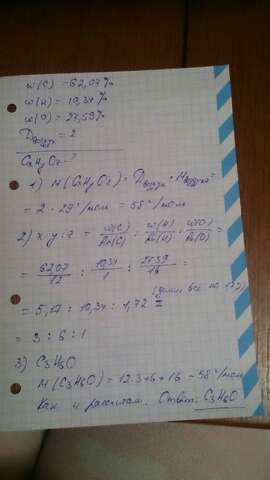 w(C) = 62,07%
w(H) = 10,34%
w(O) = 27,59%
Dвозду = 2
CxHyOz - ?
1) M(CxHyOz) = Dвозду · Mвоздуха =
= 2 · 29 г/моль = 58 г/моль
2) x:y:z = w(C)/Ar(C) : w(H)/Ar(H) : w(O)/Ar(O) =
= 62,07/12 : 10,34/1 : 27,59/16 =
(делим всё на 1,72)
= 5,17 : 10,34 : 1,72 =
= 3 : 6 : 1
3) C3H6O
M(C3H6O) = 12·3+6+16 = 58 г/моль
Как и расчитали. Ответ: C3H6O